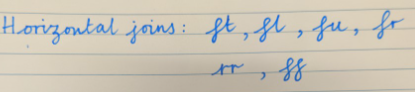 Horizontal joins: ft, fl, fu, fr
rr, ff